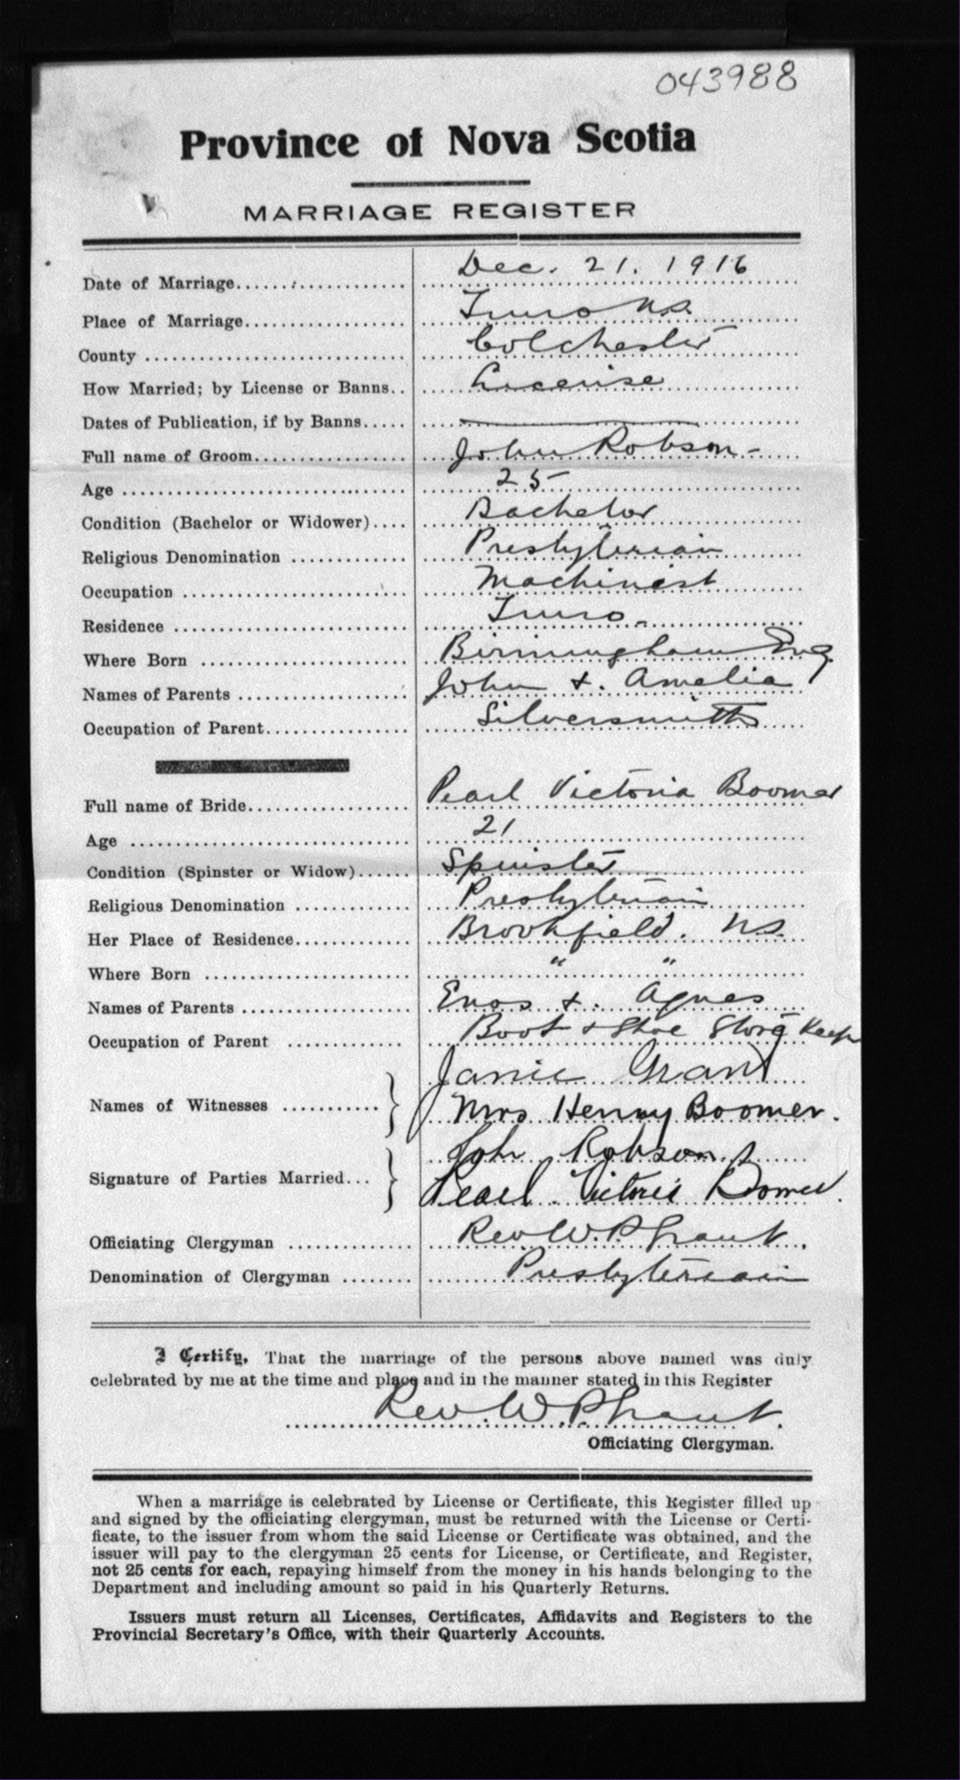 043988
Province of Nova Scotia
MARRIAGE REGISTER
Date of Marriage Dec. 21. 1916
Place of Marriage Truro N.S.
County Colchester
How Married; by License or Banns License
Dates of Publication, if by Banns
Full name of Groom John Robson
Age 25
Condition (Bachelor or Widower) Bachelor
Religious Denomination Presbyterian
Occupation Machinist
Residence Truro
Where Born Birmingham Eng.
Names of Parents John + Amelia
Occupation of Parent Silversmith
Full name of Bride Pearl Victoria Boomer
Age 21
Condition (Spinster or Widow) Spinster
Religious Denomination Presbyterian
Her Place of Residence Brookfield. N.S.
Where Born " "
Names of Parents Enos + Agnes
Occupation of Parent Boot + Shoe Store Keeper
Janie Grant
Names of Witnesses
Mrs Henry Boomer.
John Robson
Signature of Parties Married
Pearl Victoria Boomer.
Officiating Clergyman Rev. W. P. Grant.
Denomination of Clergyman Presbyterian
I Certify, That the marriage of the persons above named was duly
celebrated by me at the time and place and in the manner stated in this Register
Rev. W. P. Grant.
Officiating Clergyman.
When a marriage is celebrated by License or Certificate, this Register filled up
and signed by the officiating clergyman, must be returned with the License or Certi-
ficate, to the issuer from whom the said License or Certificate was obtained, and the
issuer will pay to the clergyman 25 cents for License, or Certificate, and Register,
not 25 cents for each, repaying himself from the money in his hands belonging to the
Department and including amount so paid in his Quarterly Returns.
Issuers must return all Licenses, Certificates, Affidavits and Registers to the
Provincial Secretary's Office, with their Quarterly Accounts.